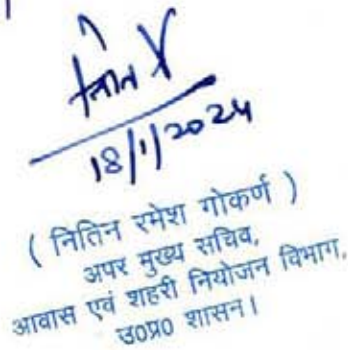 18/1/2024
( नितिन रमेश गोकर्ण )
अपर मुख्य सचिव,
आवास एवं शहरी नियोजन विभाग,
उ0प्र0 शासन।